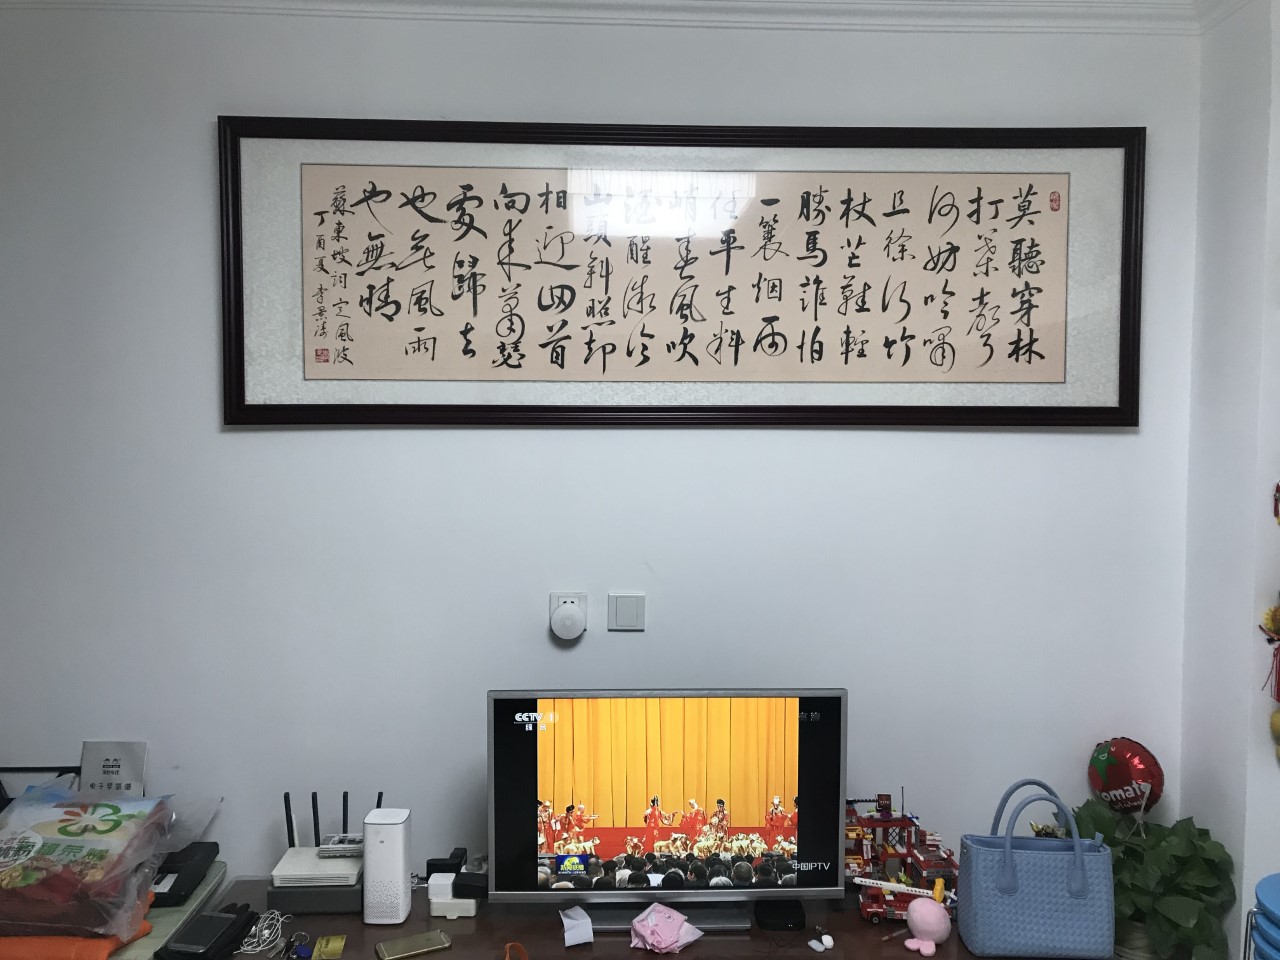 莫聽穿林
打葉聲
何妨吟嘯
且徐行竹
杖芒鞋輕
勝馬誰怕
一簑烟雨
任平生料
峭春風吹
酒醒微冷
山頭斜照却
相迎回首
向来蕭瑟
處歸去
也無風雨
也無晴
蘇東坡詞定風波
丁酉夏
CCTV 1
综合
高清
中国IPTV
omato